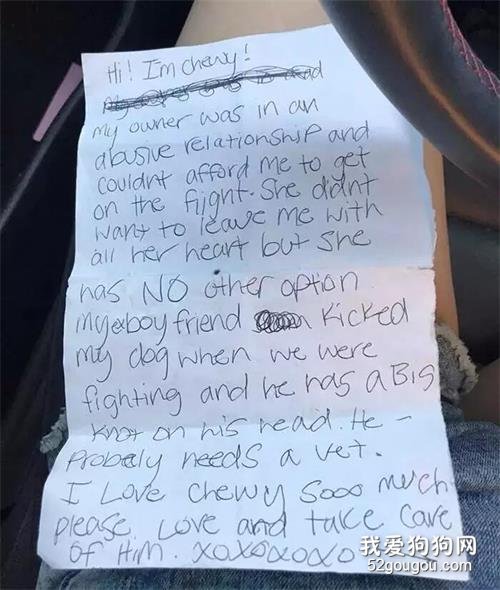 Hi! I'm chewy!
my owner was in an
abusive relationship and
couldnt afford me to get
on the flight. She didnt
want to leave me with
all her heart but she
has NO other option
My ex boyfriend kicked
my dog when we were
fighting and he has a Big
knot on his head. He
probably needs a vet.
I Love Chewy sooo much
please love and take care
of Him. xoxoxoxo
我爱狗狗网
52gougou.com